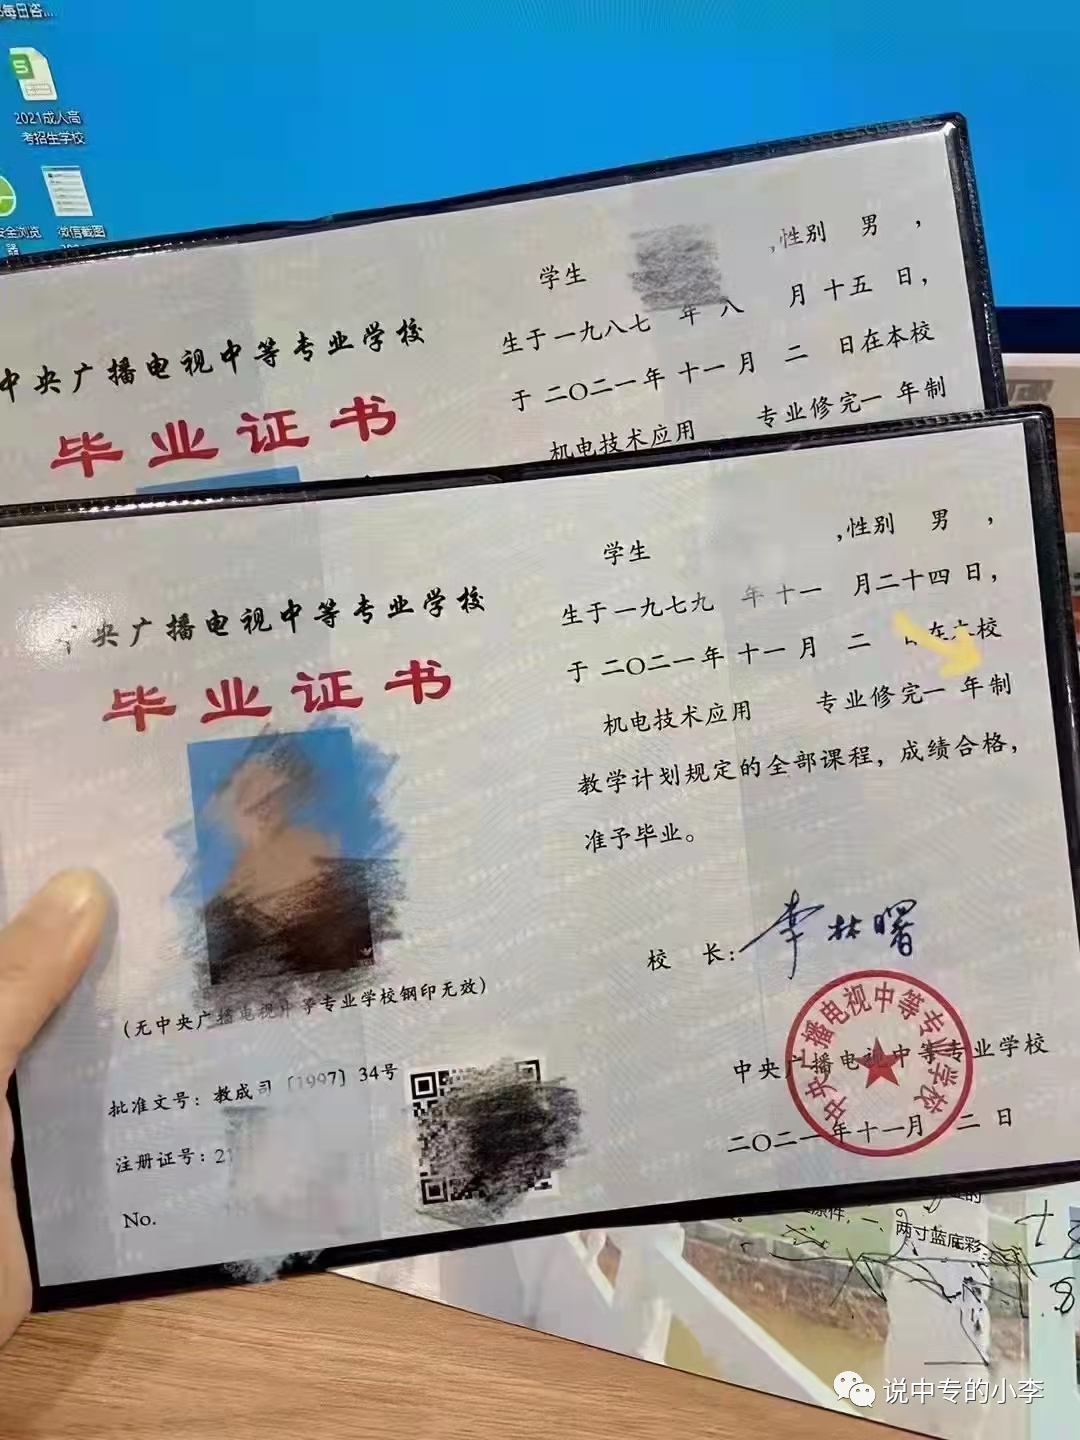 每日咨...
2021成人高
考招生学校
安全浏览
器
微信截图
中央广播电视中等专业学校
毕业证书
学生 ,性别 男 ，
生于一九八七 年 八 月 十五 日，
于 二〇二一 年 十一 月 二 日在本校
机电技术应用 专业修完一 年制
央广播电视中等专业学校
毕业证书
（无中央广播电视中等专业学校钢印无效）
批准文号：教成司〔1997〕34号
注册证号：21
No.
学生 ,性别 男 ，
生于一九七九 年 十一 月二十四 日，
于 二〇二一 年 十一 月 二 日在本校
机电技术应用 专业修完一 年制
教学计划规定的全部课程，成绩合格，
准予毕业。
校 长：李林曙
中央广播电视中等专业学校
中央广播电视中等专业学校
二〇二一年十一月 二 日
原件，一、两寸蓝底彩
说中专的小李